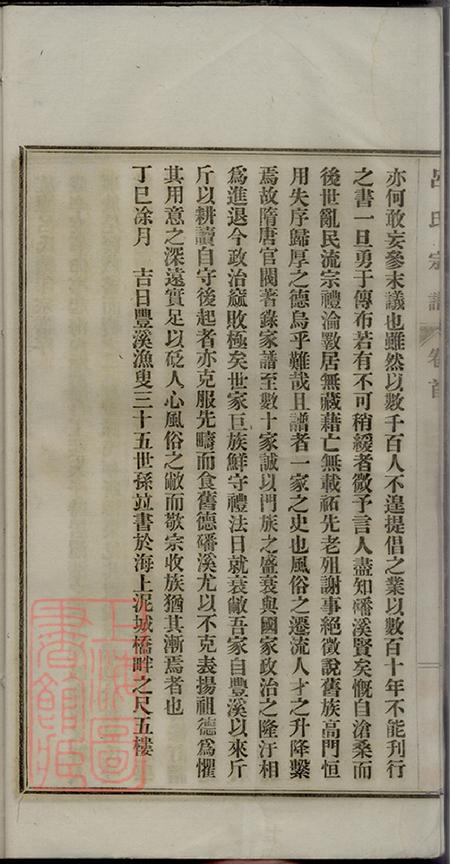 呂氏宗譜 卷首
亦何敢妄參末議也雖然以數千百人不遑提倡之業以數百十年不能刊行
之書一旦勇于傳布若有不可稍緩者微予言人盡知皤溪賢矣慨自滄桑而
後世亂民流宗禮淪斁居無藏藉亡無載祏先老殂謝事絕徵說舊族高門恒
用失序歸厚之德烏乎難哉且譜者一家之史也風俗之遷流人才之升降繫
焉故隋唐官閥著錄家譜至數十家誠以門族之盛衰與國家政治之隆汙相
爲進退今政治窳敗極矣世家巨族鮮守禮法日就衰敝吾家自豐溪以來斤
斤以耕讀自守後起者亦克服先疇而食舊德皤溪尤以不克表揚祖德爲懼
其用意之深遠實足以砭人心風俗之敝而敬宗收族猶其漸焉者也
丁巳凃月 吉日豐溪漁叟三十五世孫竝書於海上泥城橋畔之尺五樓
上海圖
書館藏